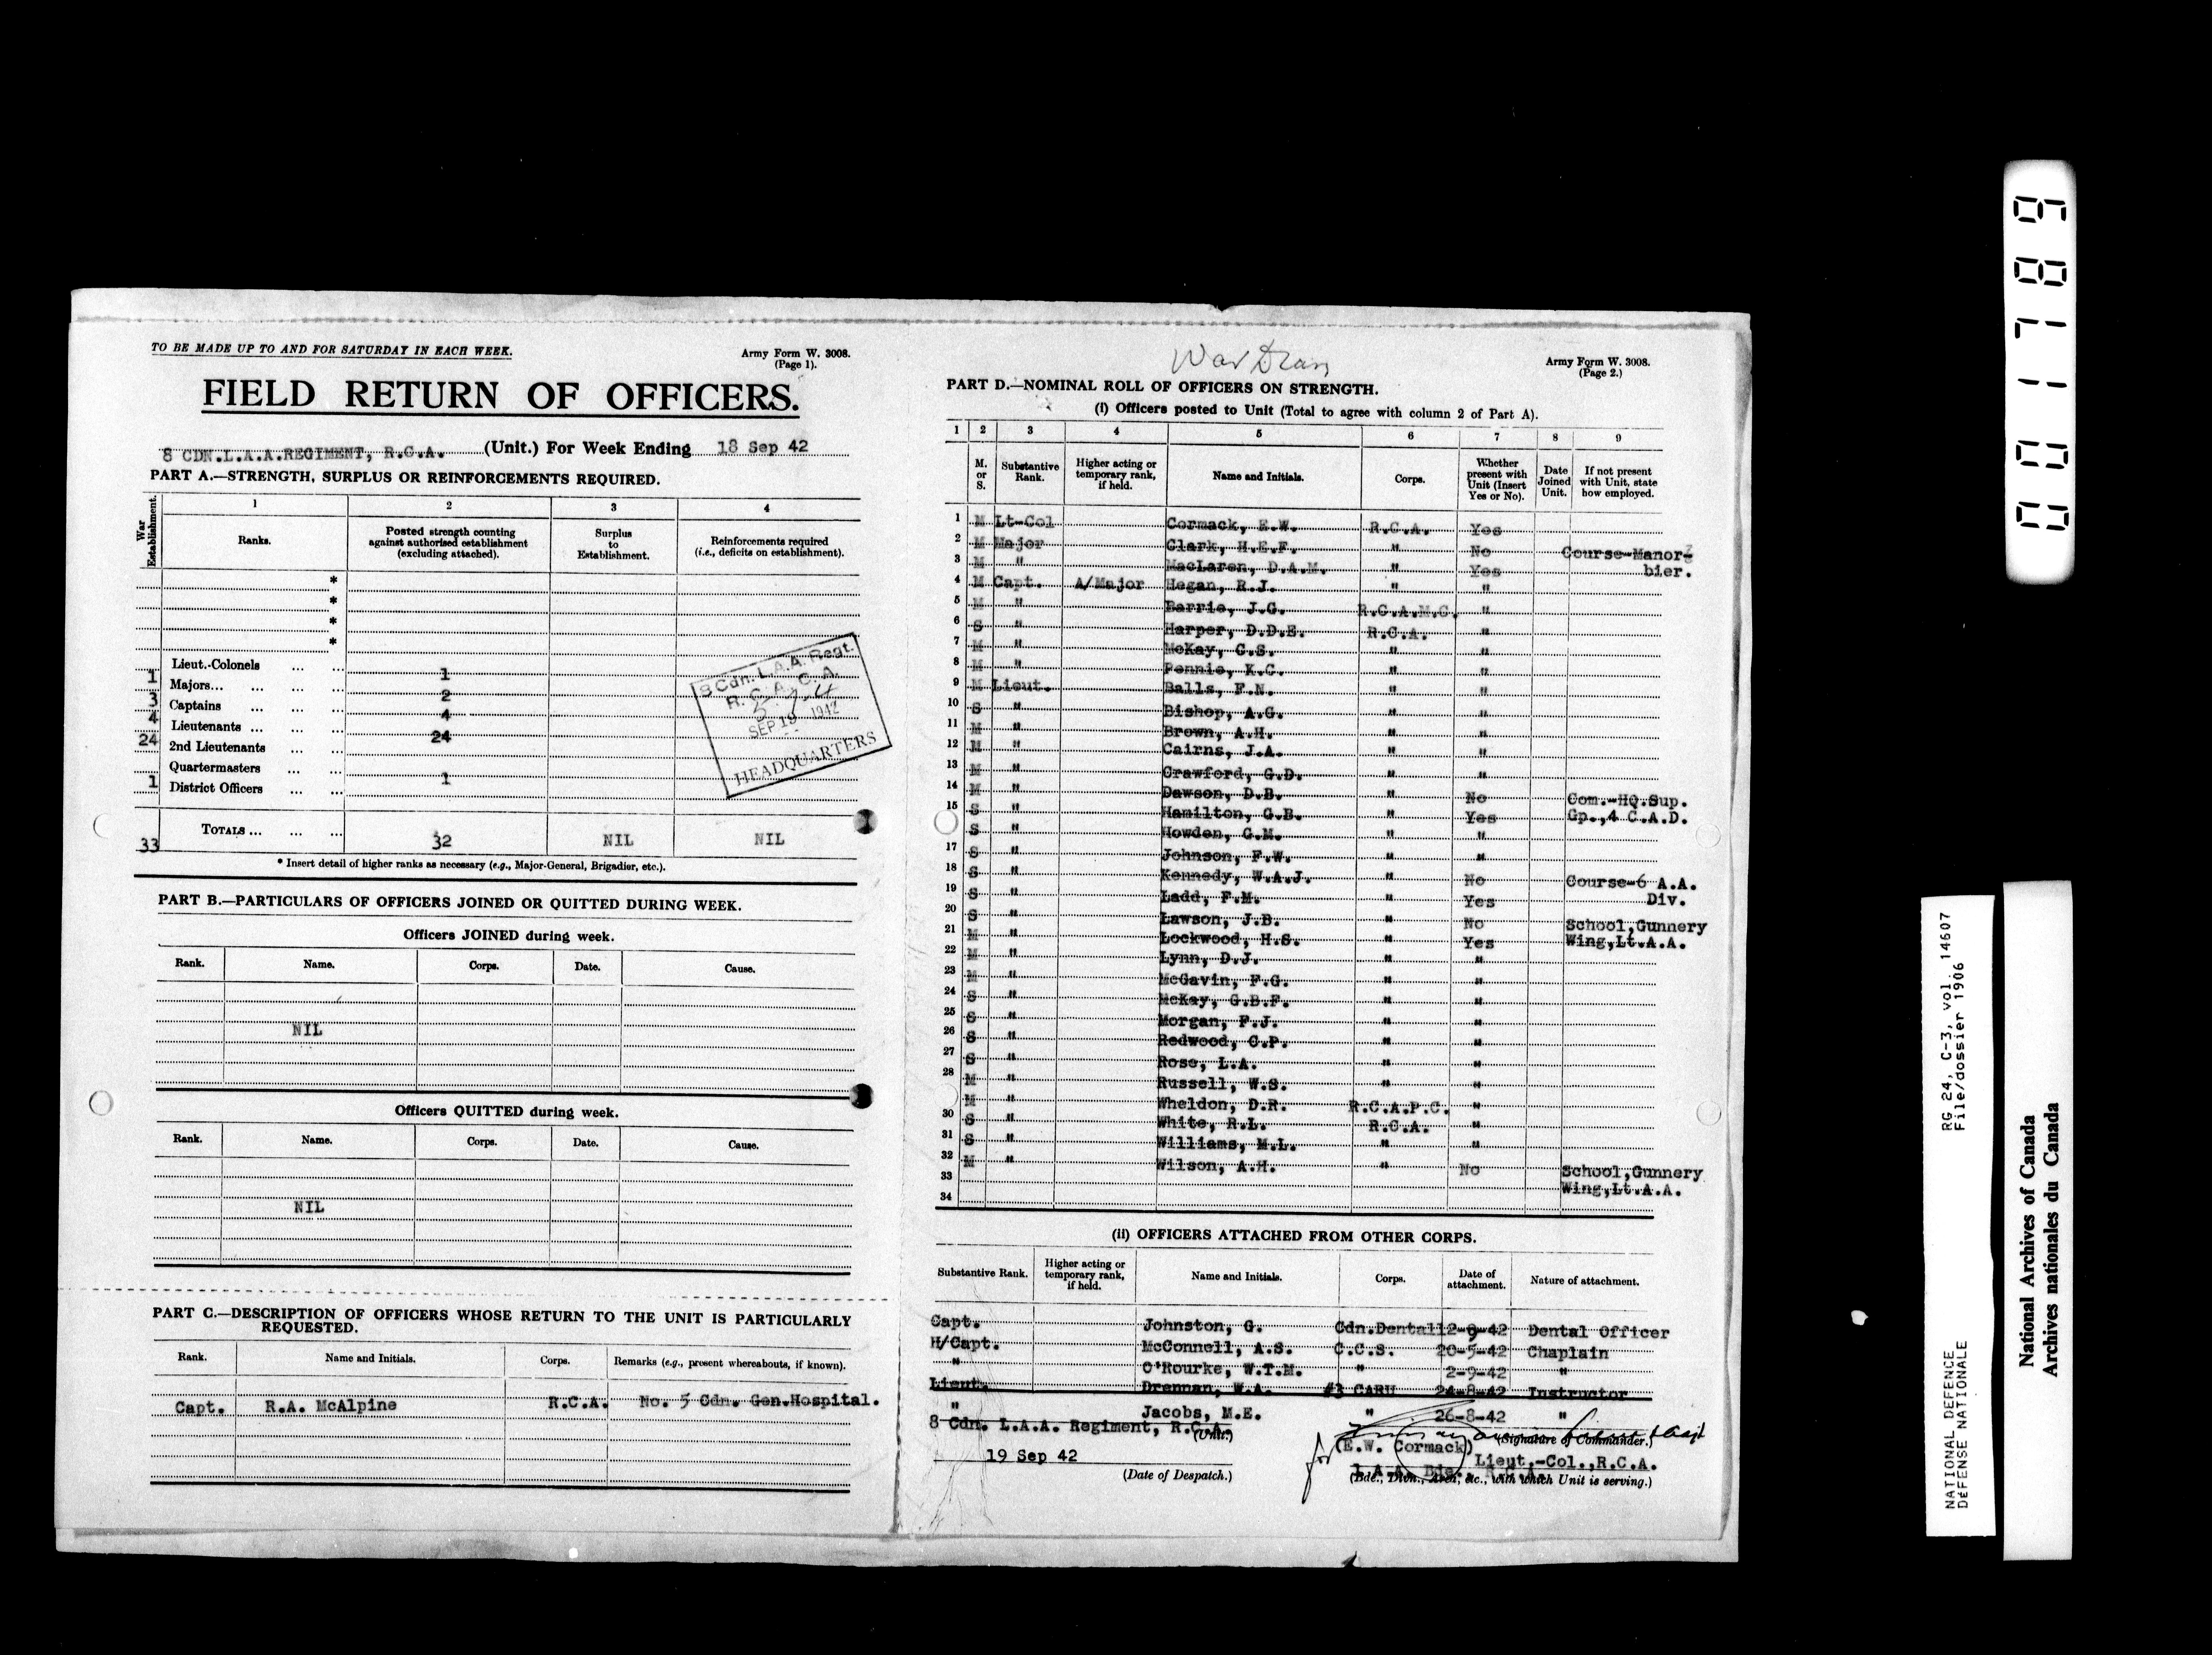 TO BE MADE UP TO AND FOR SATURDAY IN EACH WEEK.
Army Form W. 3008.
(Page 1).
FIELD RETURN OF OFFICERS.
8 CDN.L.A.A.REGIMENT, R.C.A. (Unit.) For Week Ending 18 Sep 42
PART A.—STRENGTH, SURPLUS OR REINFORCEMENTS REQUIRED.
War Establishment.
1 2 3 4
Ranks. Posted strength counting against authorised establishment (excluding attached). Surplus to Establishment. Reinforcements required (i.e., deficits on establishment).
*
*
*
*
Lieut.-Colonels ... ... 1
1 Majors... ... ... ... 2
3 Captains ... ... ... 4
4 Lieutenants ... ... ... 24
24 2nd Lieutenants ... ...
Quartermasters ... ... 1
1 District Officers ... ...
33 TOTALS ... ... ... 32 NIL NIL
8 Cdn. L.A.A. Regt.
R. C. A., C. A.
SEP 19 1942
HEADQUARTERS
* Insert detail of higher ranks as necessary (e.g., Major-General, Brigadier, etc.).
PART B.—PARTICULARS OF OFFICERS JOINED OR QUITTED DURING WEEK.
Officers JOINED during week.
Rank. Name. Corps. Date. Cause.
NIL
Officers QUITTED during week.
Rank. Name. Corps. Date. Cause.
NIL
PART C.—DESCRIPTION OF OFFICERS WHOSE RETURN TO THE UNIT IS PARTICULARLY
REQUESTED.
Rank. Name and Initials. Corps. Remarks (e.g., present whereabouts, if known).
Capt. R.A. McAlpine R.C.A. No. 5 Cdn. Gen.Hospital.
War Diary
Army Form W. 3008.
(Page 2.)
PART D.—NOMINAL ROLL OF OFFICERS ON STRENGTH.
(i) Officers posted to Unit (Total to agree with column 2 of Part A).
1 2 3 4 5 6 7 8 9
M. or S. Substantive Rank. Higher acting or temporary rank, if held. Name and Initials. Corps. Whether present with Unit (Insert Yes or No). Date Joined Unit. If not present with Unit, state how employed.
1 M Lt-Col Cormack, E.W. R.C.A. Yes
2 M Major Clark, H.E.F. " No Course-Manor-
3 M " MacLaren, D.A.M. " Yes bier.
4 M Capt. A/Major Hegan, R.J. " "
5 M " Barrie, J.G. R.C.A.M.C. "
6 S " Harper, D.D.E. R.C.A. "
7 M " McKay, C.S. " "
8 M " Pennie, K.C. " "
9 M Lieut. Balls, F.N. " "
10 S " Bishop, A.G. " "
11 M " Brown, A.H. " "
12 M " Cairns, J.A. " "
13 M " Crawford, G.D. " "
14 M " Dawson, D.B. " No Com.-HQ.Sup.
15 S " Hamilton, G.B. " Yes Gp.,4 C.A.D.
S " Howden, G.M. " "
17 S " Johnson, F.W. " "
18 S " Kennedy, W.A.J. " No Course-6 A.A.
19 S " Ladd, F.M. " Yes Div.
20 S " Lawson, J.B. " No School,Gunnery
21 M " Lockwood, H.S. " Yes Wing,Lt.A.A.
22 M " Lynn, D.J. " "
23 M " McGavin, F.G. " "
24 S " McKay, G.B.F. " "
25 S " Morgan, F.J. " "
26 S " Redwood, C.P. " "
27 S " Rose, L.A. " "
28 M " Russell, W.S. " "
M " Wheldon, D.R. R.C.A.P.C. "
30 S " White, R.L. R.C.A. "
31 S " Williams, M.L. " "
32 M " Wilson, A.H. " No School,Gunnery
33 Wing,Lt.A.A.
34
(ii) OFFICERS ATTACHED FROM OTHER CORPS.
Substantive Rank. Higher acting or temporary rank, if held. Name and Initials. Corps. Date of attachment. Nature of attachment.
Capt. Johnston, G. Cdn.Dental 12-9-42 Dental Officer
H/Capt. McConnell, A.S. C.C.S. 20-5-42 Chaplain
" O'Rourke, W.T.M. " 2-9-42 "
Lieut. Drennan, W.A. #3 CARU 24-8-42 Instructor
" Jacobs, M.E. " 26-8-42 "
8 Cdn. L.A.A. Regiment, R.C.A. (Unit.)
for (E.W. Cormack) (Signature of Commander.)
Lieut.-Col.,R.C.A.
19 Sep 42
(Date of Despatch.)
(Bde., Divn., Area, etc., with which Unit is serving.)
NATIONAL DEFENCE RG 24, C-3, vol. 14607
DÉFENSE NATIONALE File/dossier 1906
National Archives of Canada
Archives nationales du Canada